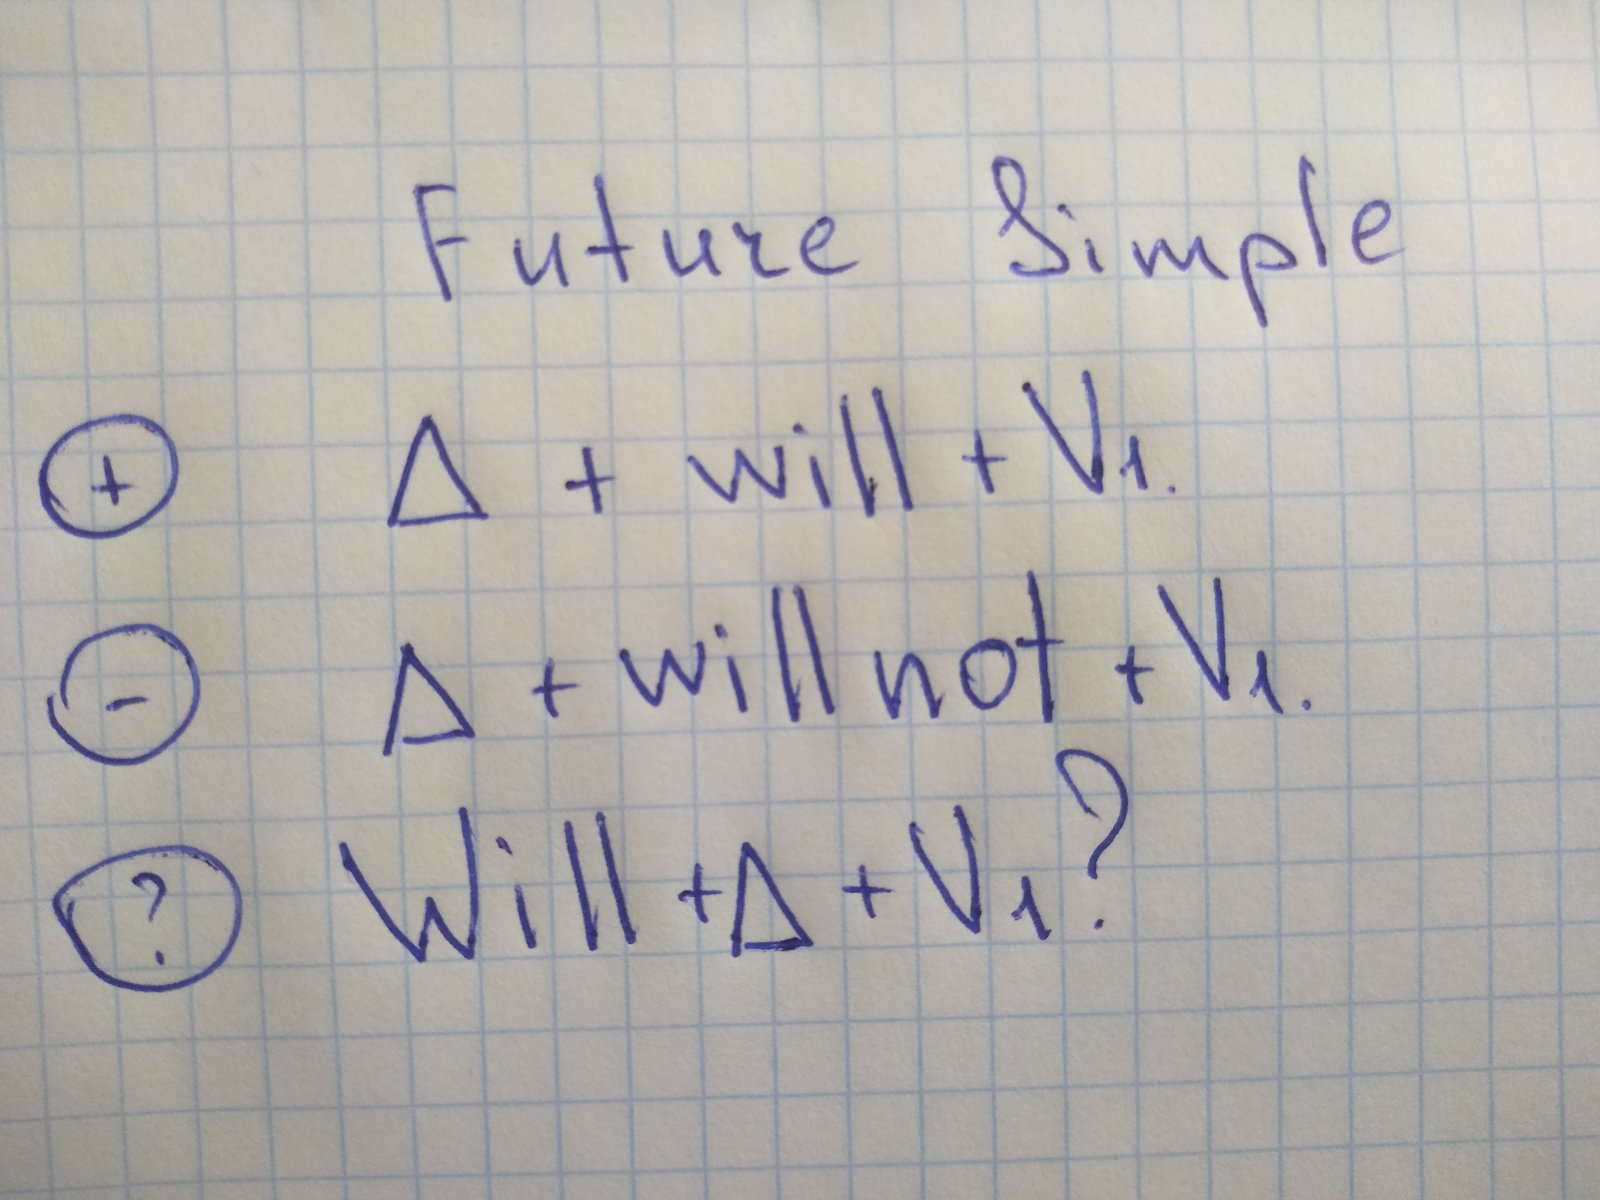 Future Simple
+ Δ + will + V1.
- Δ + will not + V1.
? Will + Δ + V1?